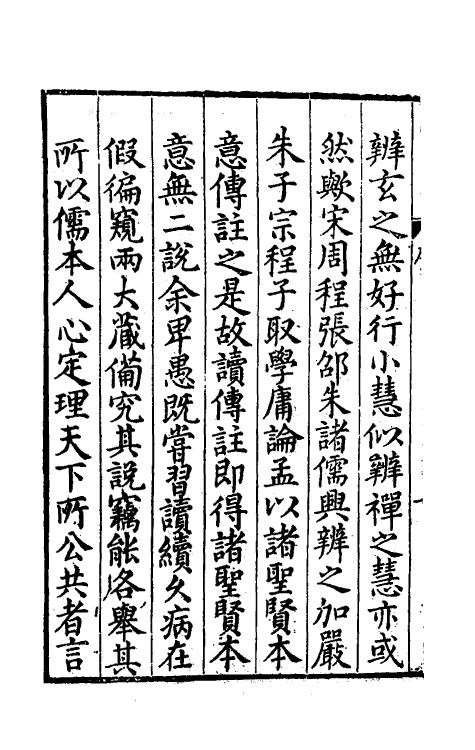 辨玄之無好行小慧似辨禪之慧亦或
然歟宋周程張邵朱諸儒興辨之加嚴
朱子宗程子取學庸論孟以諸聖賢本
意傳註之是故讀傳註即得諸聖賢本
意無二說余卑愚既嘗習讀續久病在
假徧窺兩大藏備究其說竊能各舉其
所以儒本人心定理天下所公共者言